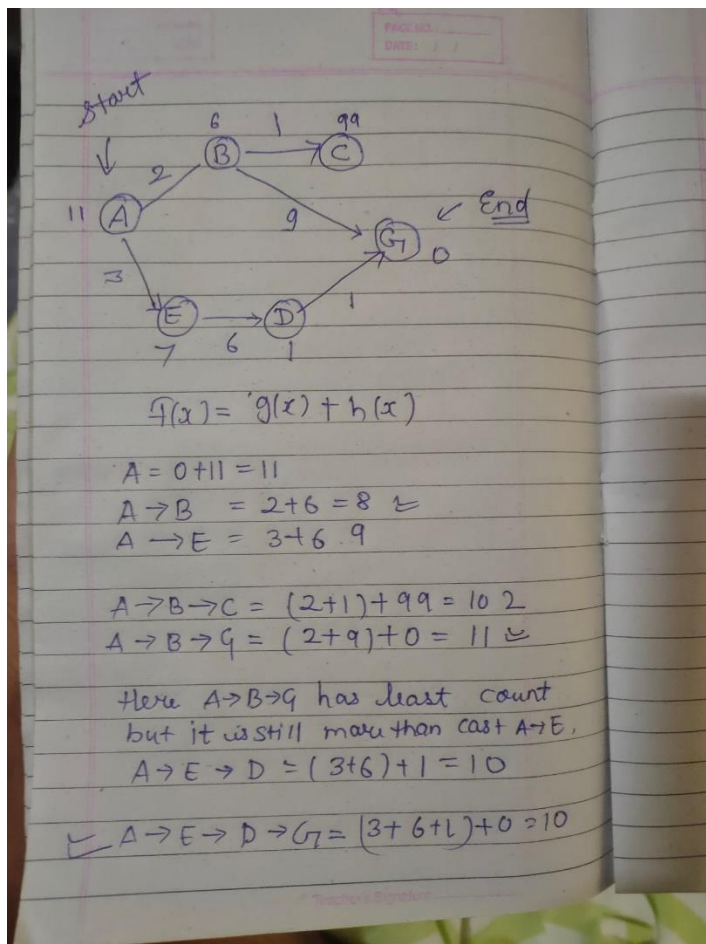 PAGE NO.:
DATE: / /
Start
6 1 99
B C
2
11 A
9
End
G
0
3
1
E D
7 6 1
f(x) = g(x) + h(x)
A = 0+11 = 11
A → B = 2+6 = 8
A → E = 3+6 9
A → B → C = (2+1) + 99 = 10 2
A → B → G = (2+9) + 0 = 11
Here A→B→G has least count
but it is still more than cast A→E.
A → E → D = (3+6) + 1 = 10
A → E → D → G = (3+6+1)+0 = 10
Teacher's Signature